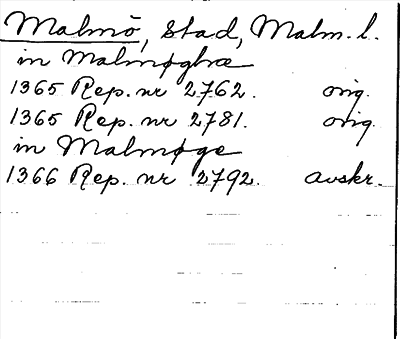 Malmö, stad, Malm. l.
in Malmøghæ
1365 Rep. nr 2762. orig.
1365 Rep. nr 2781. orig.
in Malmøge
1366 Rep. nr 2792. avskr.